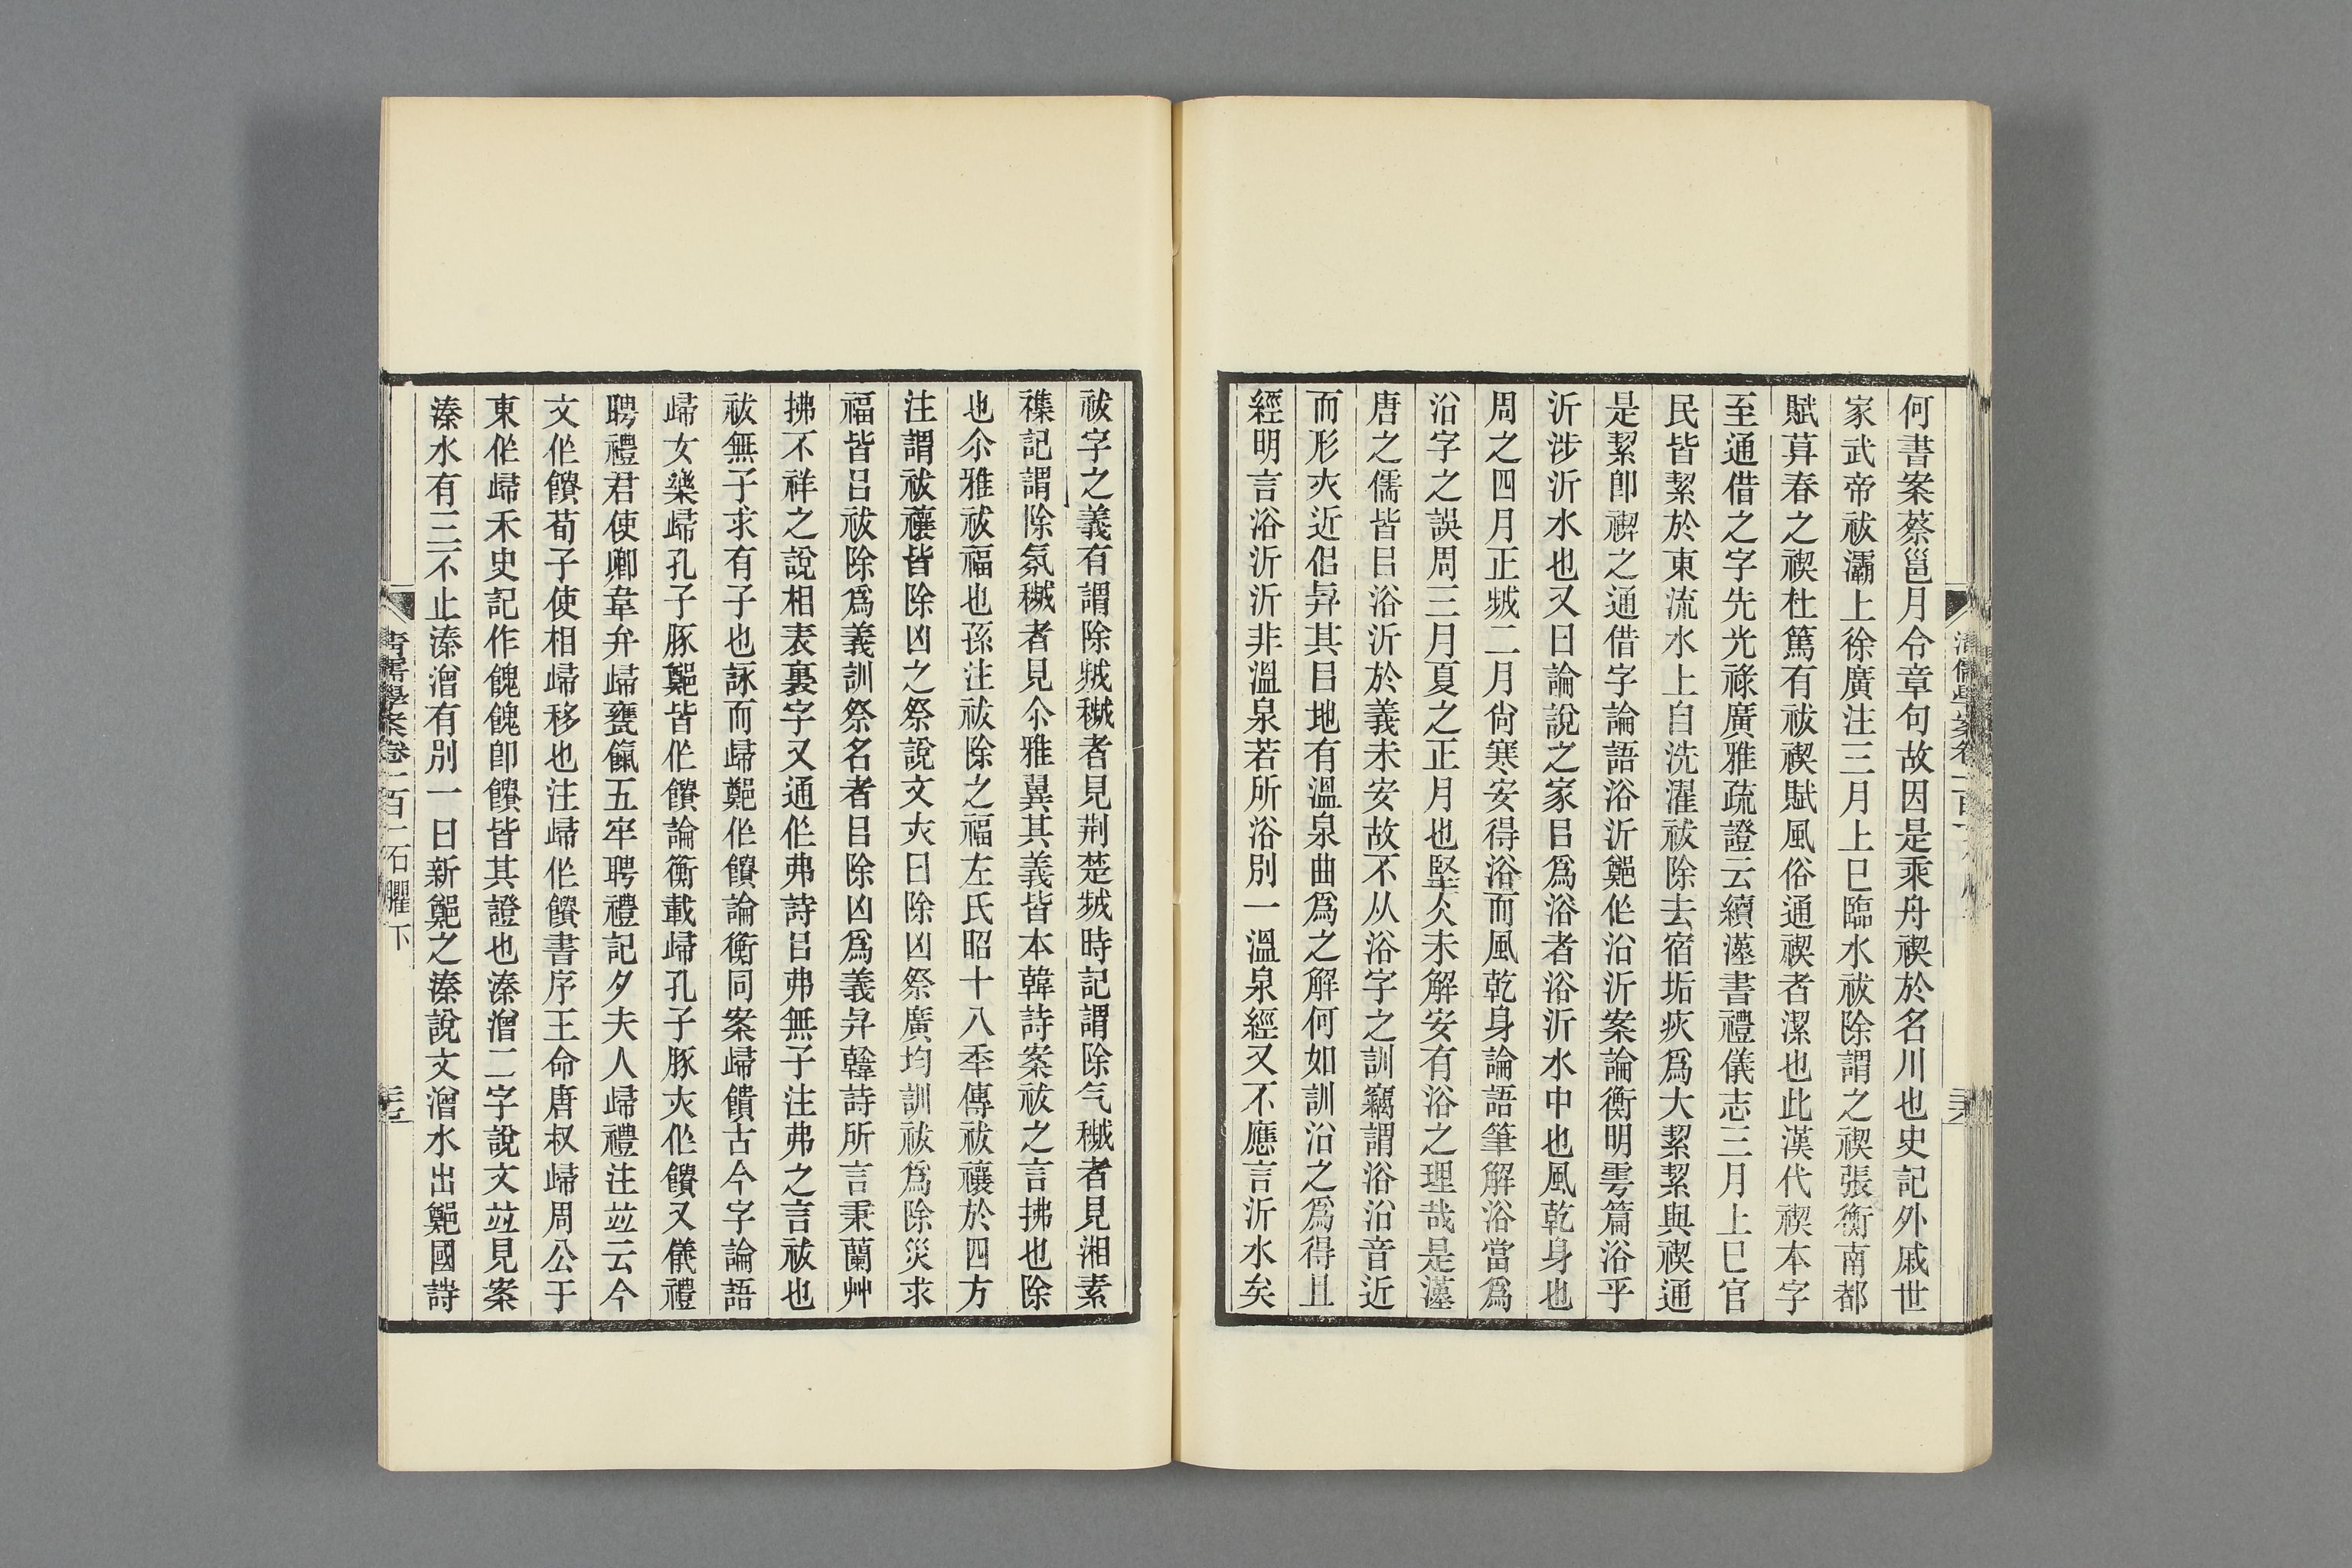 何書案蔡邕月令章句故因是乘舟禊於名川也史記外戚世
家武帝祓灞上徐廣注三月上巳臨水祓除謂之禊張衡南都
賦葬春之禊杜篤有祓禊賦風俗通禊者潔也此漢代禊本字
至通借之字先光祿廣雅疏證云續漢書禮儀志三月上巳官
民皆絜於東流水上自洗濯祓除去宿垢疢爲大絜絜與禊通
是絜卽禊之通借字論語浴沂鄭作沿沂案論衡明雩篇浴乎
沂涉沂水也又曰論說之家㠯爲浴者浴沂水中也風乾身也
周之四月正歲二月尙寒安得浴而風乾身論語筆解浴當爲
沿字之誤周三月夏之正月也堅仌未解安有浴之理哉是漢
唐之儒皆㠯浴沂於義未安故不从浴字之訓竊謂浴沿音近
而形夾近侣昪其㠯地有溫泉曲爲之解何如訓沿之爲得且
經明言浴沂沂非溫泉若所浴別一溫泉經又不應言沂水矣
清儒學案卷
祓字之義有謂除歲穢者見荆楚歲時記謂除气穢者見湘素
襍記謂除氛穢者見尒雅翼其義皆本韓詩案祓之言拂也除
也尒雅祓福也孫注祓除之福左氏昭十八秊傳祓禳於四方
注謂祓禳皆除凶之祭說文夾曰除凶祭廣均訓祓爲除災求
福皆㠯祓除爲義訓祭名者㠯除凶爲義昪韓詩所言秉蘭艸
拂不祥之說相表裏字又通作弗詩㠯弗無子注弗之言祓也
祓無子求有子也詠而歸鄭作饋論衡同案歸饋古今字論語
歸女樂歸孔子豚鄭皆作饋論衡載歸孔子豚夾作饋又儀禮
聘禮君使卿韋弁歸饔餼五牢聘禮記夕夫人歸禮注竝云今
文作饋荀子使相歸移也注歸作饋書序王命唐叔歸周公于
東作歸禾史記作餽餽卽饋皆其證也溱潧二字說文竝見案
溱水有三不止溱潧有別一曰新鄭之溱說文潧水出鄭國詩
清儒學案卷一百二石臞下
三七